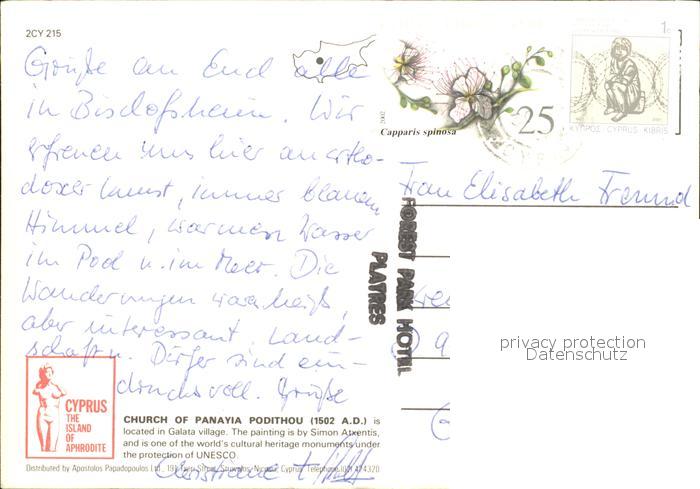 2CY 215
Grüße an End alle
in Bischofsheim. Wir
erfreuen uns hier an ortho-
doxer Kunst, immer blauem
Himmel, warmem Wasser
im Pool u. im Meer. Die
Wanderungen war heiß,
aber interessant, Land-
schaft u. Dörfer sind ein-
drucksvoll. Grüße
Christiane
CYPRUS
THE
ISLAND
OF
APHRODITE
CHURCH OF PANAYIA PODITHOU (1502 A.D.) is
located in Galata village. The painting is by Simon Afxentis,
and is one of the world's cultural heritage monuments under
the protection of UNESCO.
Distributed by Apostolos Papadopoulos Ltd., Street, Strovolos, Nicosia, Cyprus. Telephone
2002
Capparis spinosa
25
1c
ΚΥΠΡΟΣ CYPRUS KIBRIS
Frau Elisabeth Freund
FOREST PARK HOTEL
PLATRES
privacy protection
Datenschutz